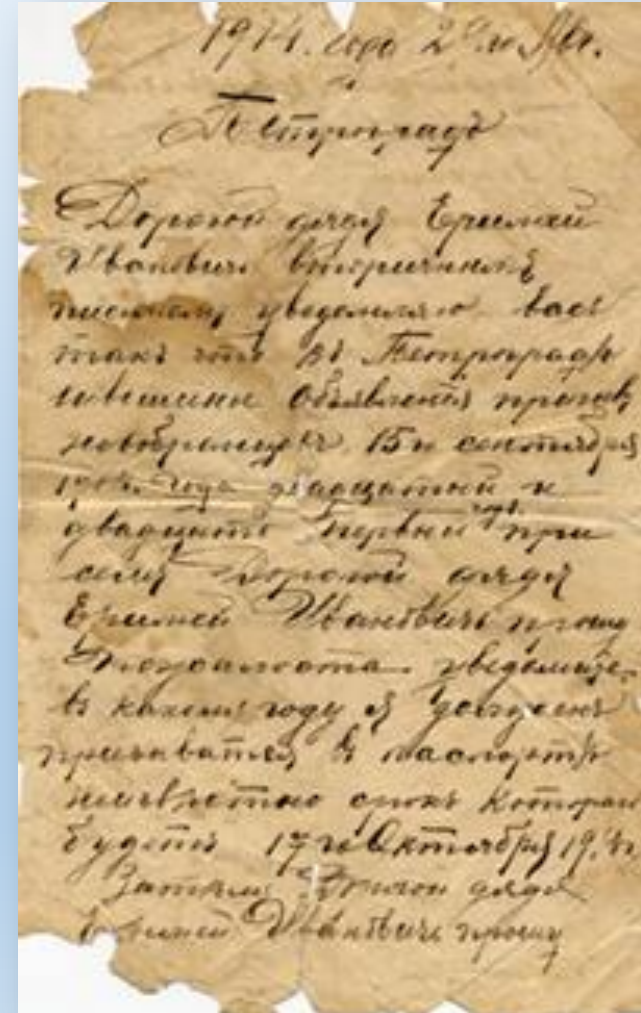 1914. года 2го
Петроградъ
Дорогой дядя Еримей
Ивановичъ вторичнымъ
письмомъ уведомляю васъ
такъ что въ Петроградѣ
объявленія
новобранцевъ 15го сентября
года двадцатый и
двадцать первый годъ при
семъ Дорогой дядя
Еримей Ивановичъ прошу
Пожалоста уведомите
въ какомъ году я долженъ
призыватся въ паспортѣ
неизвѣстно срокъ которой
будетъ 17го Октября
Затемъ дядя
Еримей Ивановичъ прошу